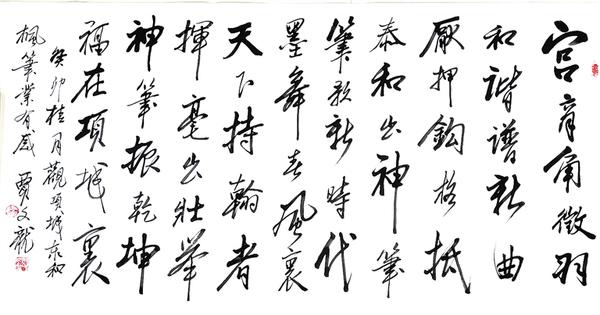 宫商角徵羽
和諧譜新曲
厥押鈎格抵
泰和出神筆
筆歌新時代
墨舞春風裏
天下持翰者
揮毫出壯舉
神筆振乾坤
福在項城裏
癸卯桂月觀項城泰和
楓筆業有感 賈文龍